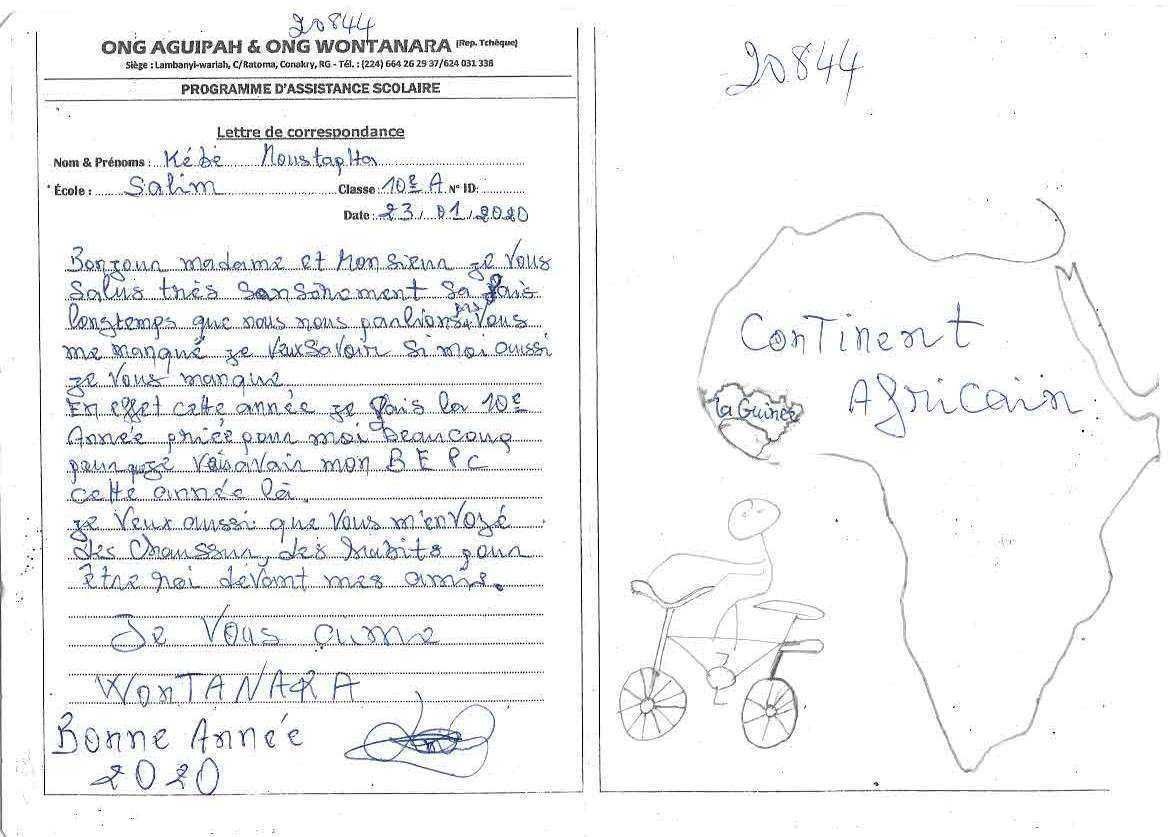 20844
ONG AGUIPAH & ONG WONTANARA (Rep. Tchèque)
Siège : Lambanyi-wariah, C/Ratoma, Conakry, RG - Tél. : (224) 664 26 29 37/624 031 338
PROGRAMME D'ASSISTANCE SCOLAIRE
Lettre de correspondance
Nom & Prénoms : Kébé Moustapha
École : Salim Classe : 10e A N° ID:
Date : 23/01/2020
Bonjour madame et Monsieur je vous
Salus très sansèrement sa fais
longtemps que nous nous parlions Vous
me manqué je veux savoir si moi aussi
je vous manque.
En effet cette année je fais la 10e
Année priée pour moi beaucoup
pour avair mon BEPC
cette année là.
je veux aussi que vous m'envoyé
des chaussur, des habits pour
être roi devant mes amis.
Je Vous aime
WONTANARA
Bonne Année
2020
20844
Continent
Africain
la Guinée